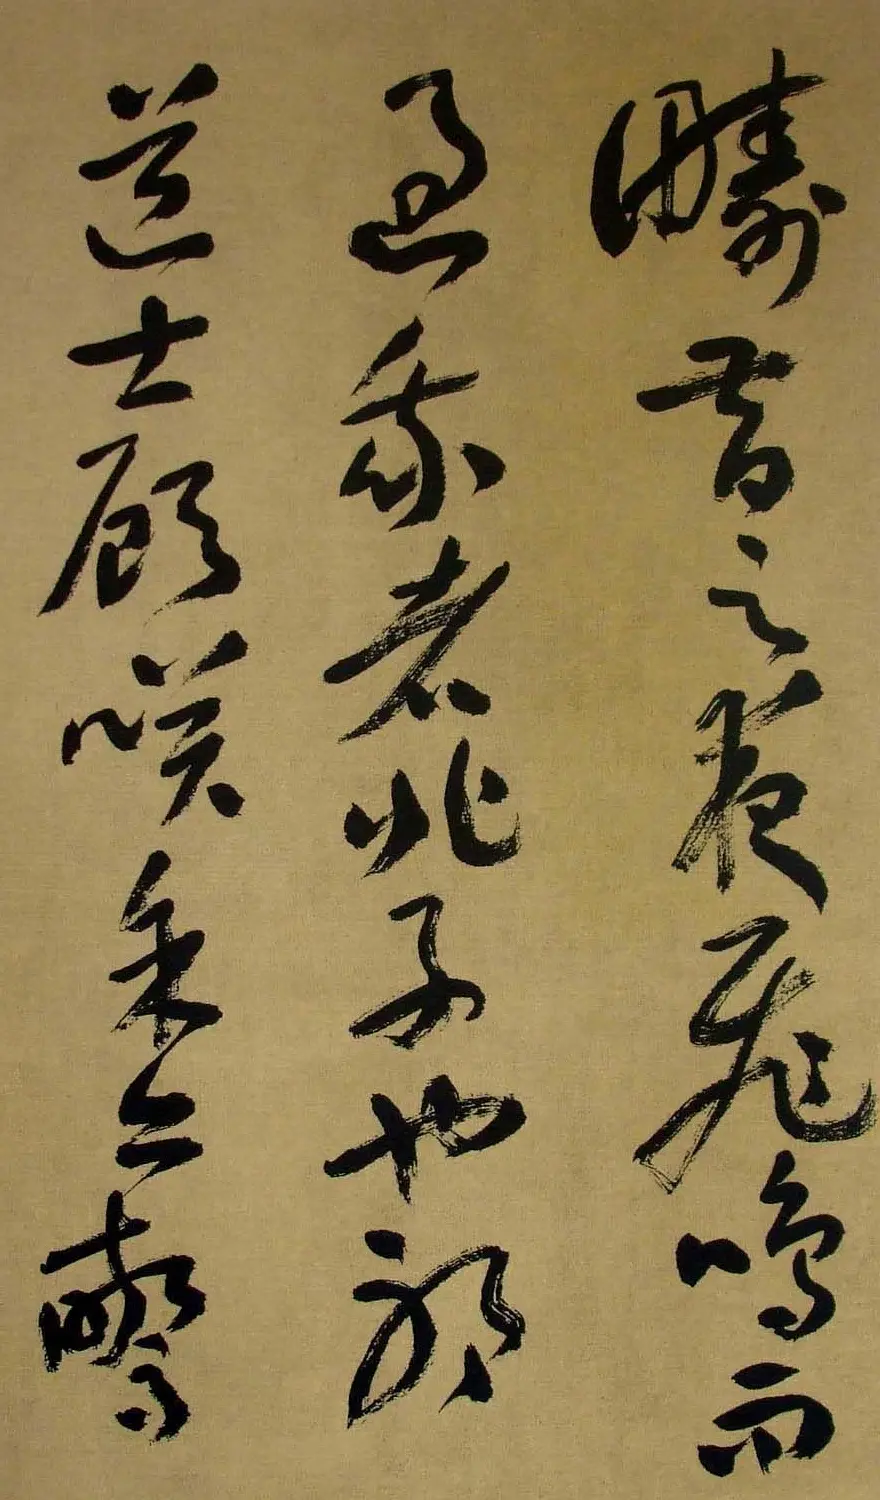 疇昔之夜飛鳴而
過我者非子也邪
道士顧咲余亦驚